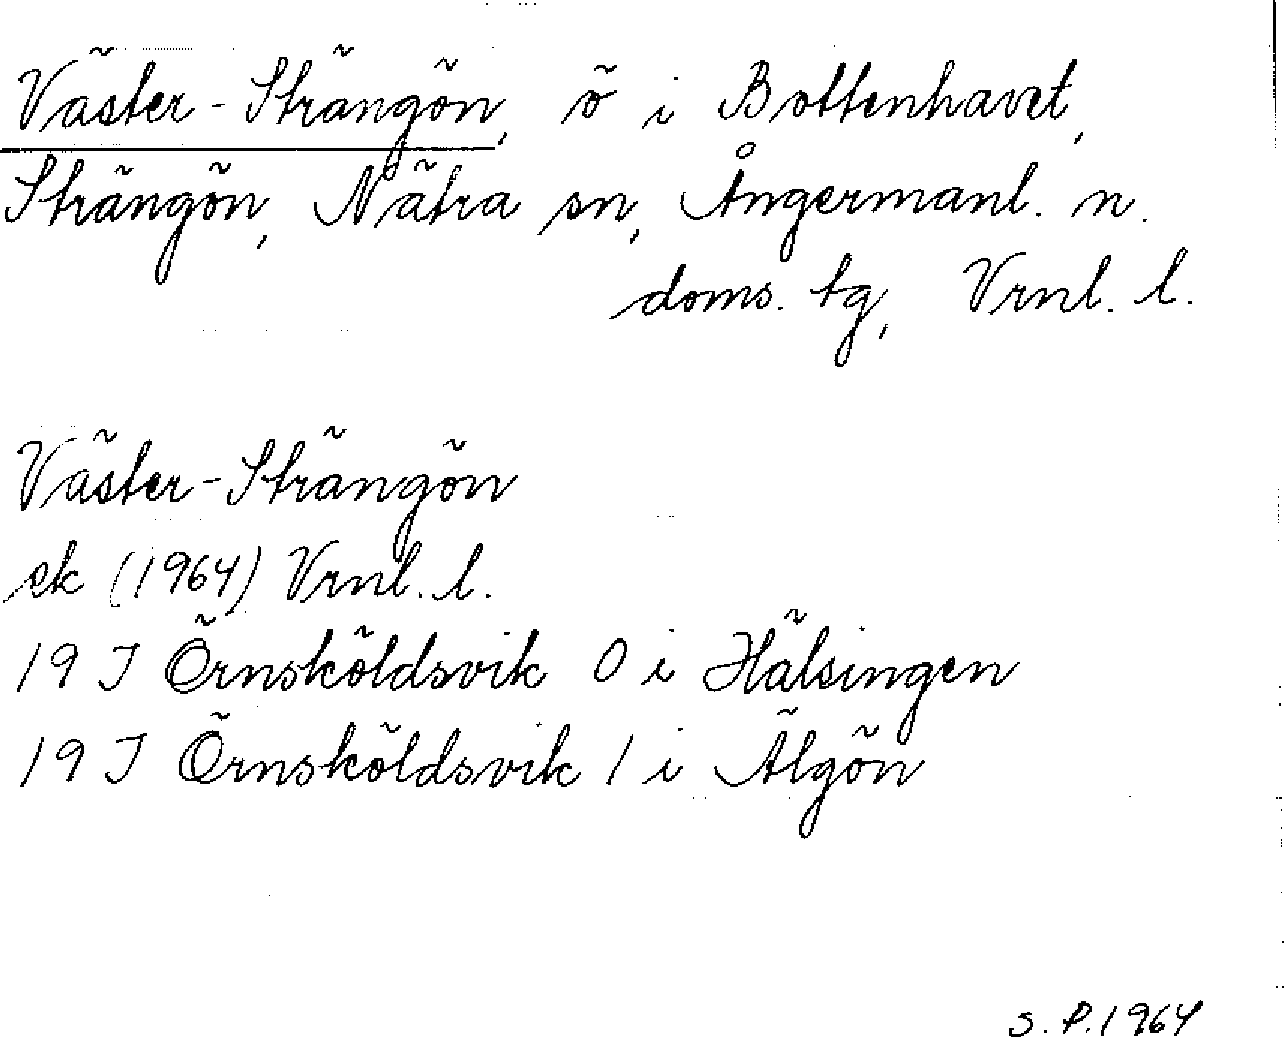 Väster-Strängön, ö i Bottenhavet,
Strängön, Nätra sn, Ångermanl. n.
doms. tg, Vrnl. l.
Väster-Strängön
ek (1964) Vrnl. l.
19 J Örnsköldsvik 0 i Hälsingen
19 J Örnsköldsvik 1 i Älgön
S. P. 1964